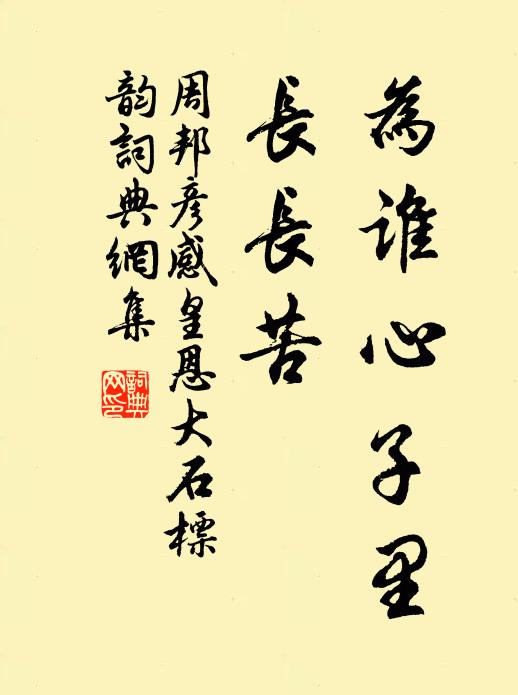 為誰心子里
長長苦
周邦彥感皇恩大石標
韵詞典網集
詞典
网印